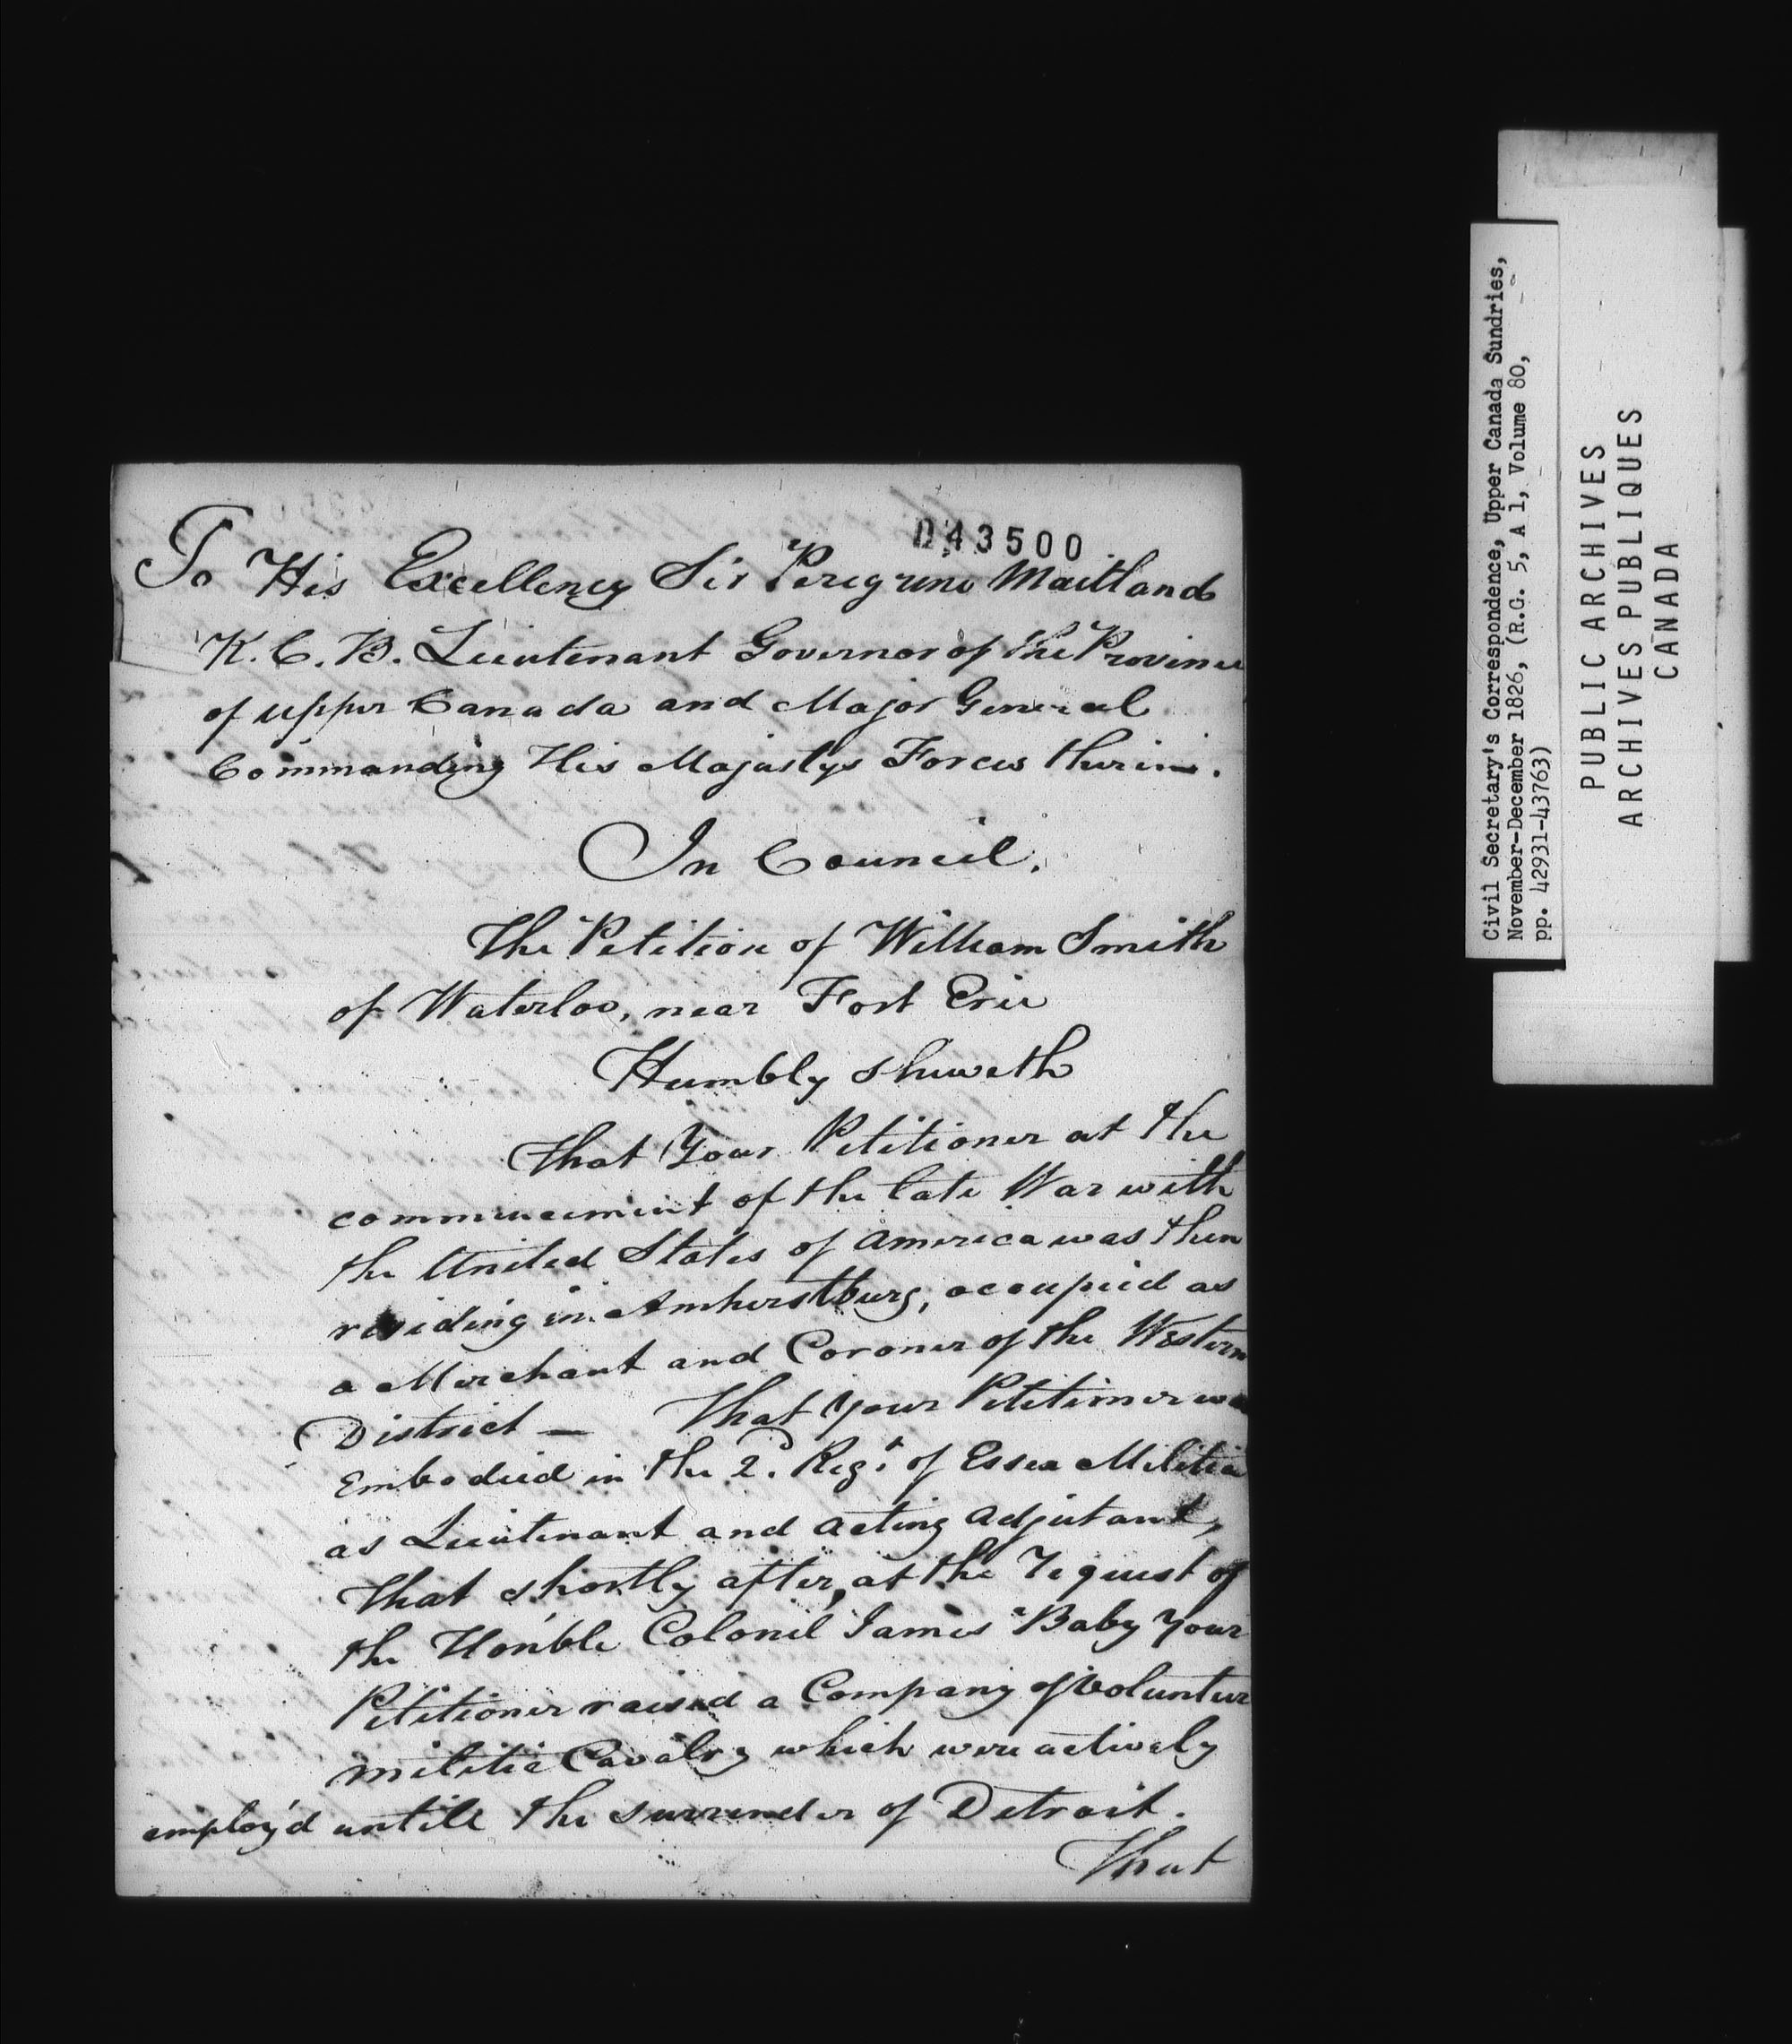 043500
To His Excellency Sir Peregrine Maitland
K. C. B. Lieutenant Governor of the Province
of upper Canada and Major General
Commanding His Majestys Forces therein.
In Council.
The Petition of William Smith
of Waterloo, near Fort Erie
Humbly sheweth
That Your Petitioner at the
commencement of the late War with
the United States of America was then
residing in Amherstburg, occupied as
a Merchant and Coroner of the Western
District — That your Petitioner was
Embodied in the 2d. Regt. of Essex Militia
as Lieutenant and acting adjutant,
that shortly after, at the request of
the Honble Colonel James Baby Your
Petitioner raised a Company of Volunteer
militia Cavalry which were actively
employ'd untill the surrender of Detroit.
That
Civil Secretary's Correspondence, Upper Canada Sundries,
November-December 1826, (R.G. 5, A 1, Volume 80,
pp. 42931-43763)
PUBLIC ARCHIVES
ARCHIVES PUBLIQUES
CANADA